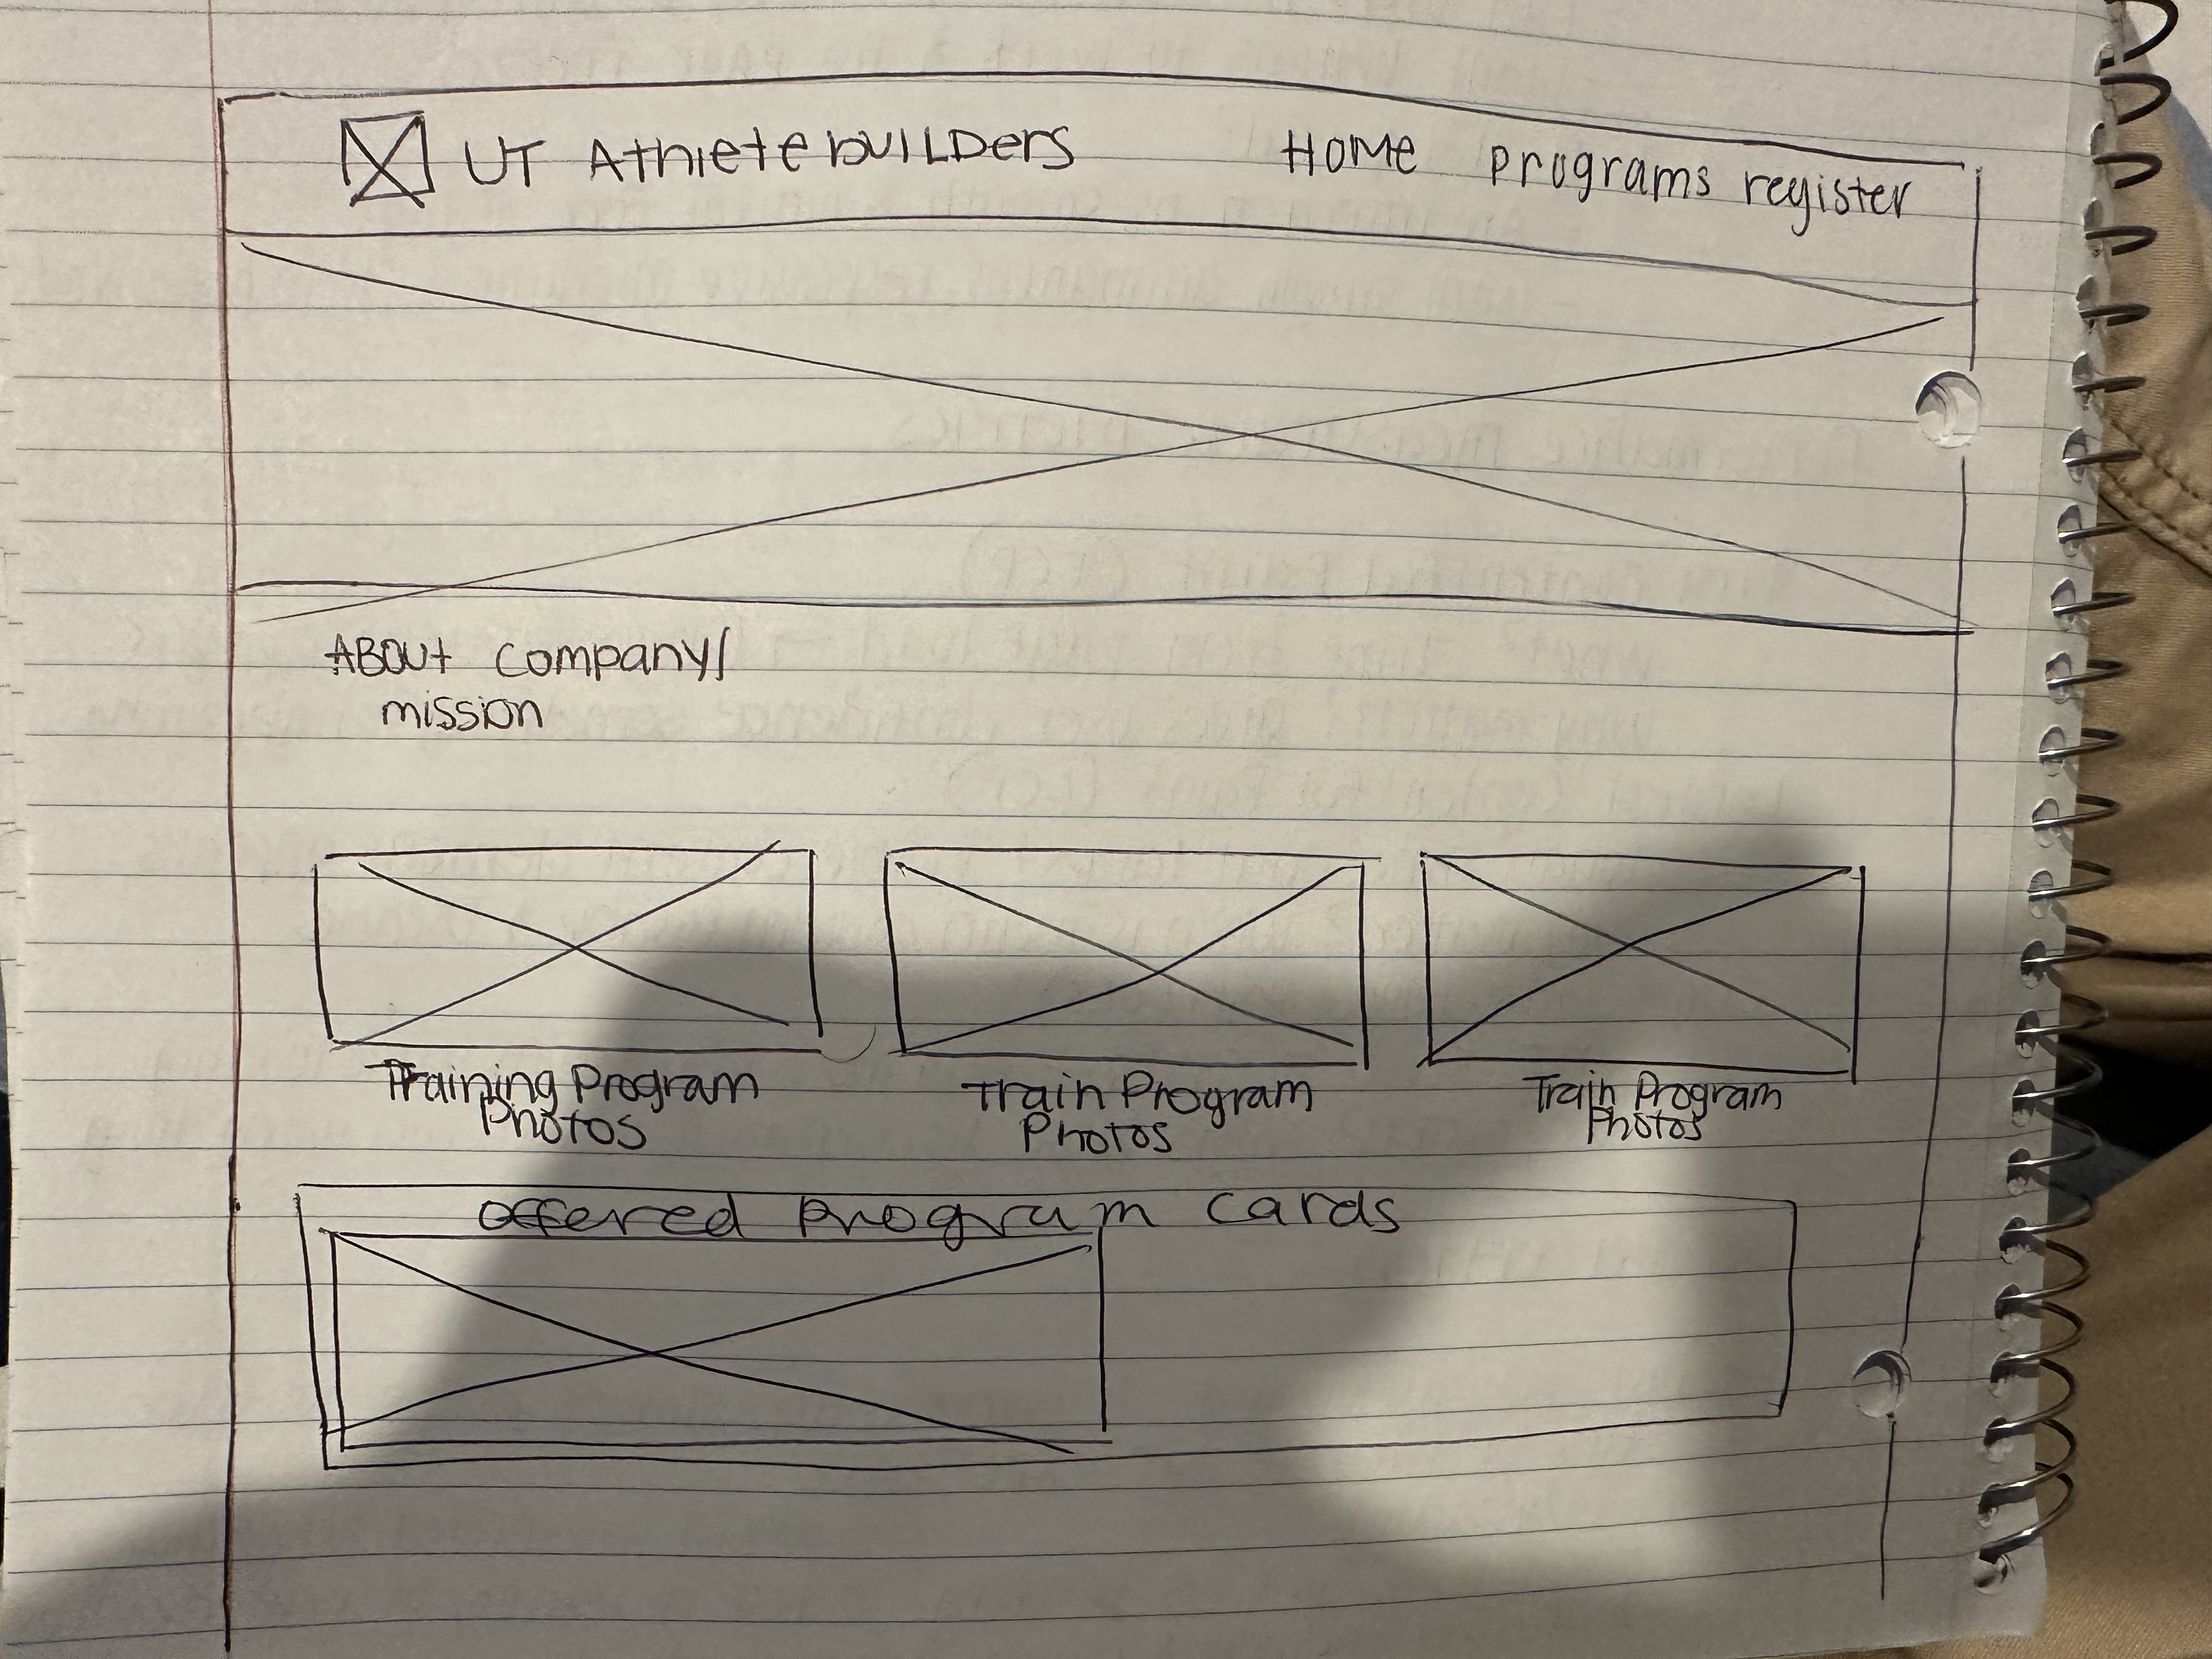 UT Athlete BUILDers Home programs register
ABOUT company/
mission
Training Program
photos
Train Program
photos
Train Program
photos
offered program cards